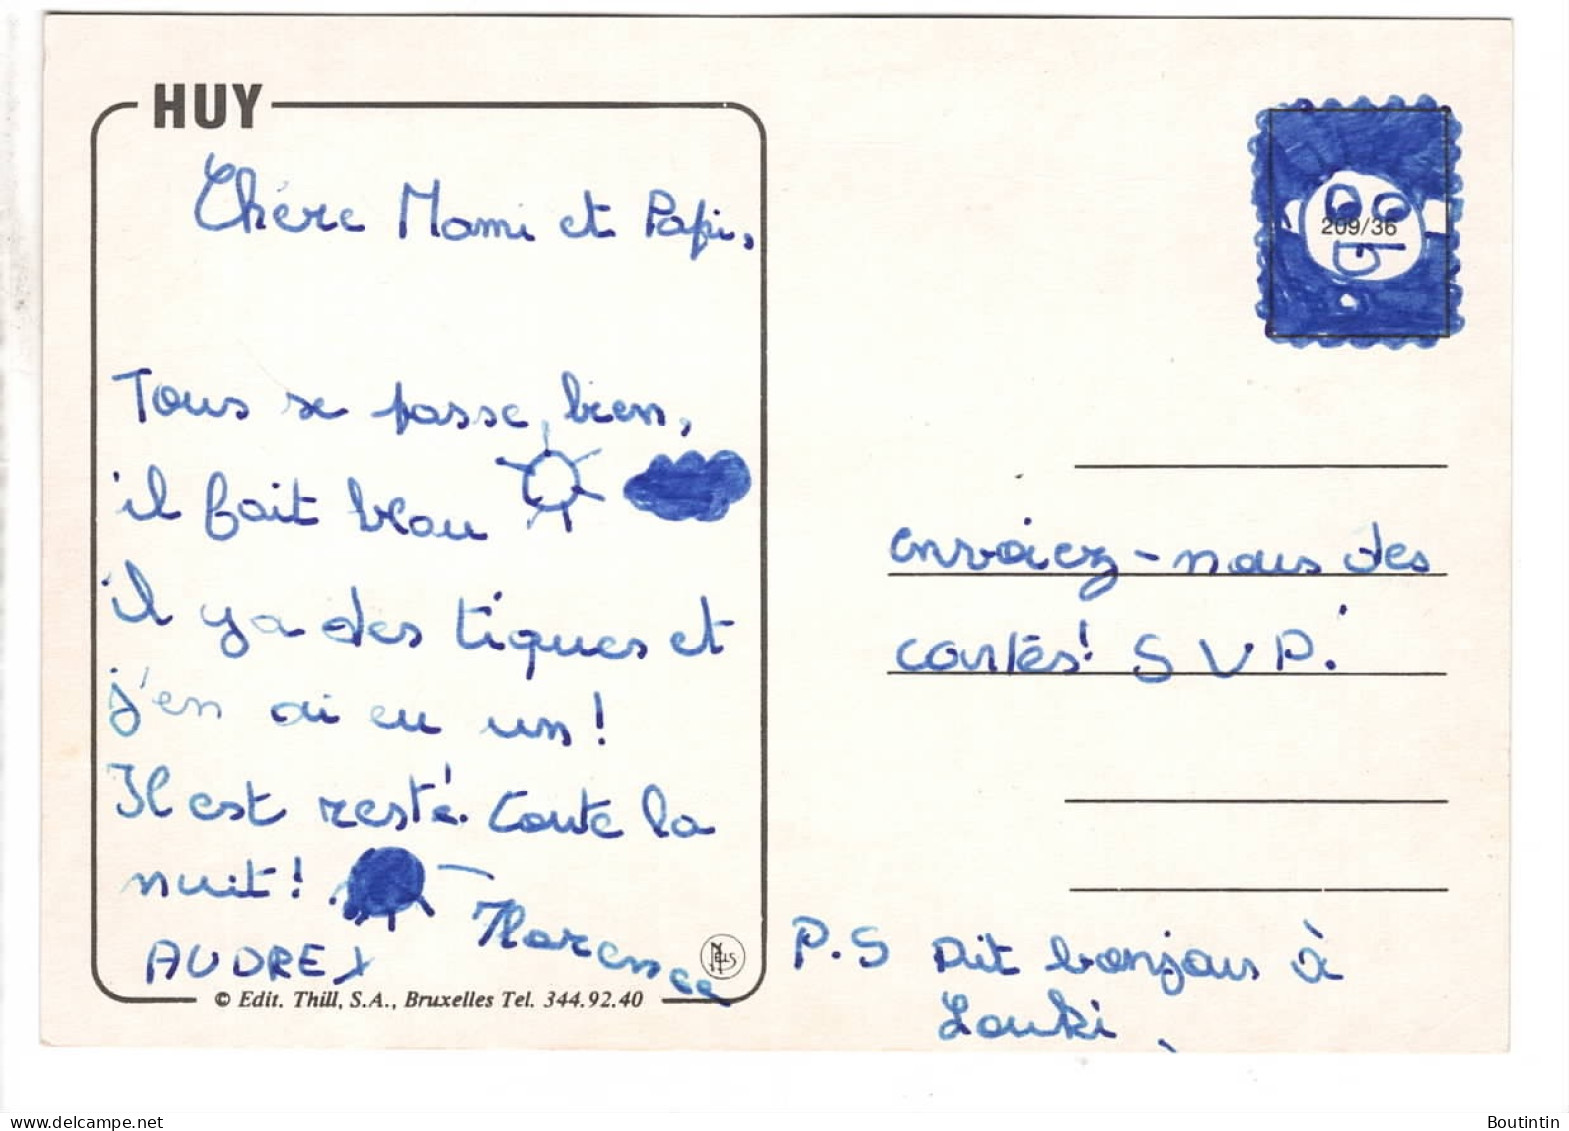 HUY
Chére Mami et Papi,
Tous se passe bien,
il fait beau
il ya des tiques et
j'en ai eu un!
Il est resté toute la
nuit!
AUDREY Florence
© Edit. Thill, S.A., Bruxelles Tel. 344.92.40
NELS
209/36
envoiez-nous des
cartes! S V P.
P.S Dit bonjour à
Louki
delcampe.net
Boutintin